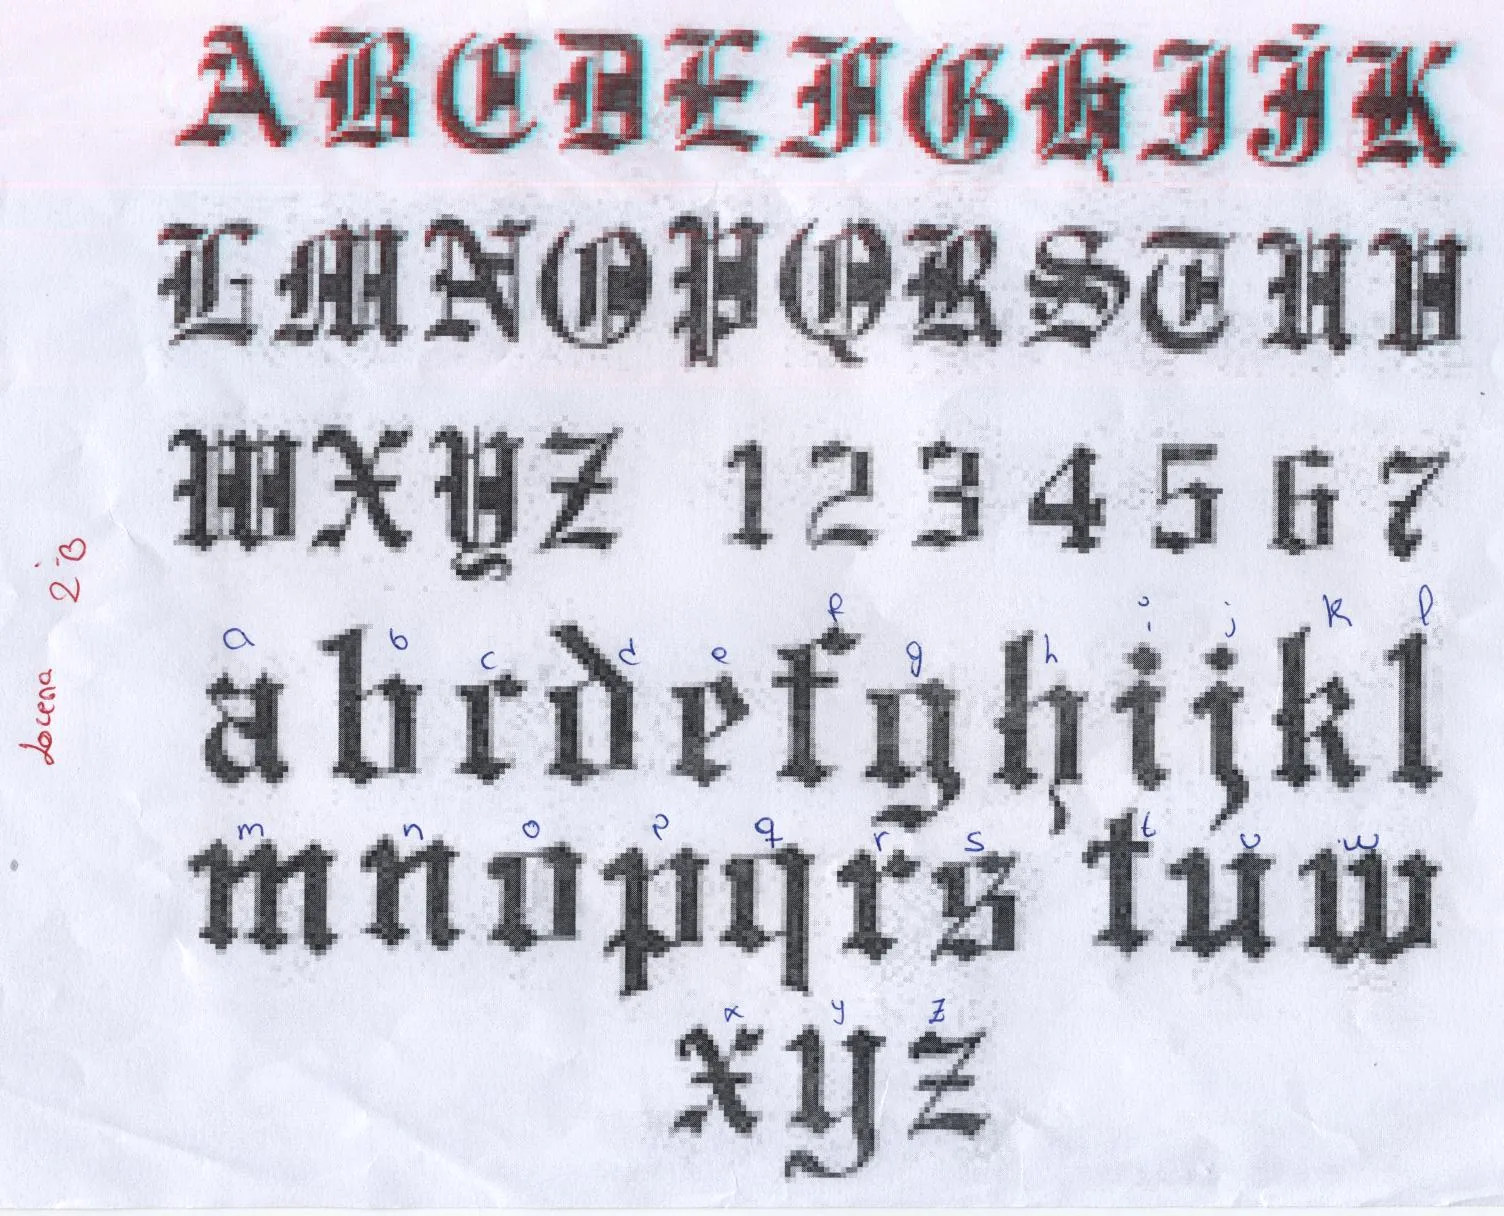 A B C D E F G H I J K
L M N O P Q R S T U V
W X Y Z 1 2 3 4 5 6 7
a b c d e f g h i j k l
a b c d e f g h i j k l
m n o p q r s t u w
m n o p q r s t u w
x y z
x y z